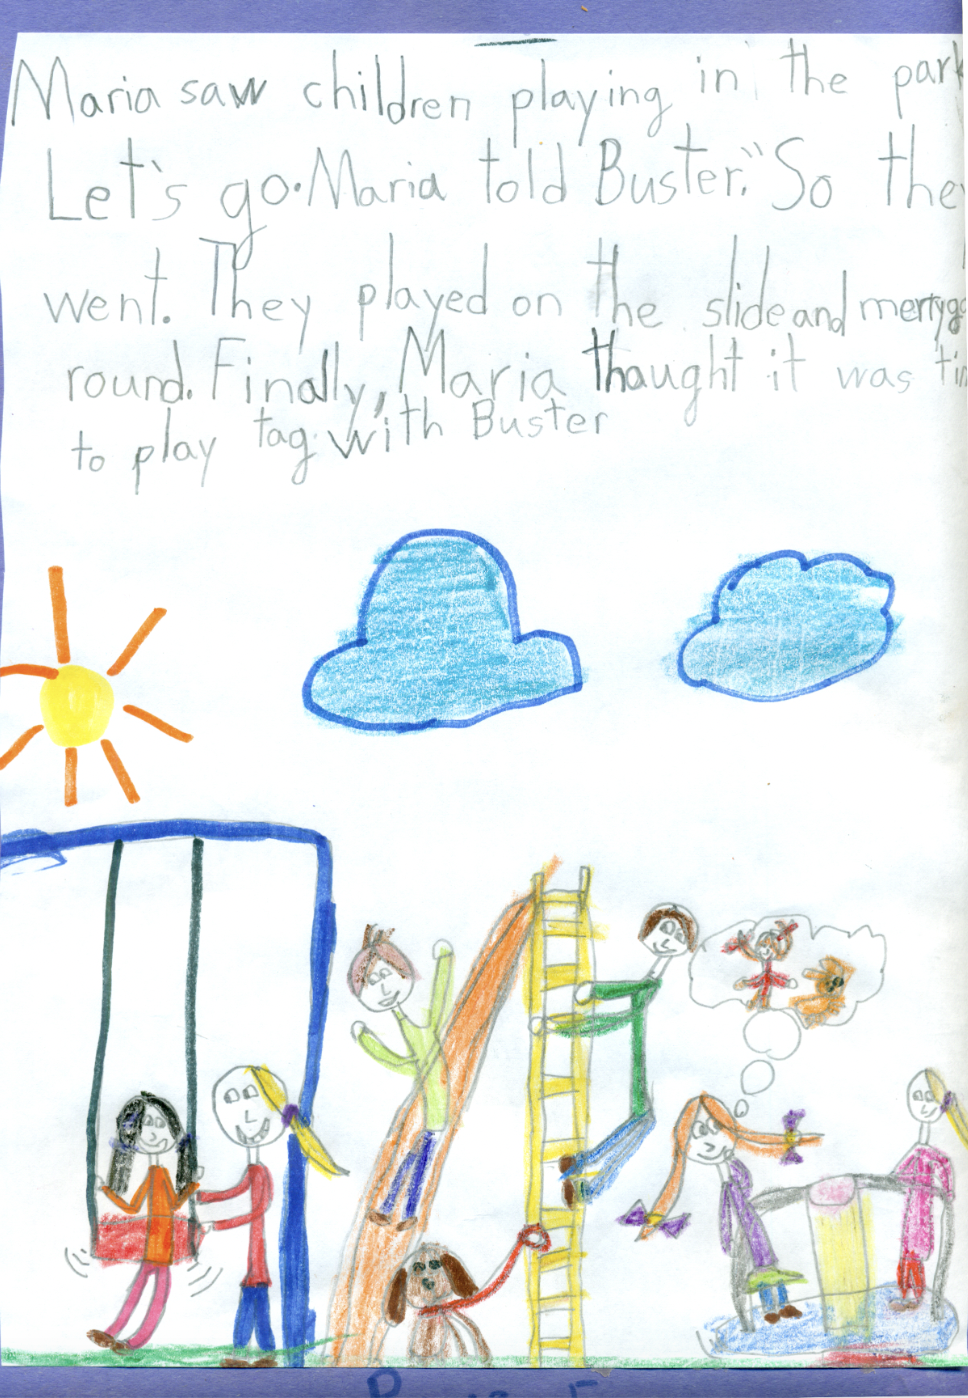 Maria saw children playing in the park
Let's go. Maria told Buster." So they
went. They played on the slide and merrygo
round. Finally, Maria thaught it was
to play tag with Buster